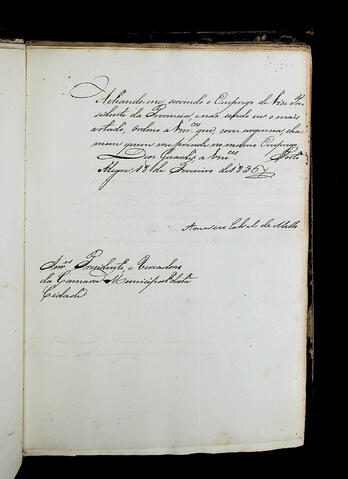 Achando me servindo o Emprego de Vice Pre-
sidente da Provincia, e não sendo eu o mais
votado, ordeno a Vm.ces que, com urgencia, cha-
mem quem me precede no mesmo Emprego.
Deos Guarde a Vm.ces Porto
Alegre 18 de Fevereiro de 1836
Americo Cabral de Mello
Snr.es Presidente e Vereadores
da Camara Municipal desta
Cidade